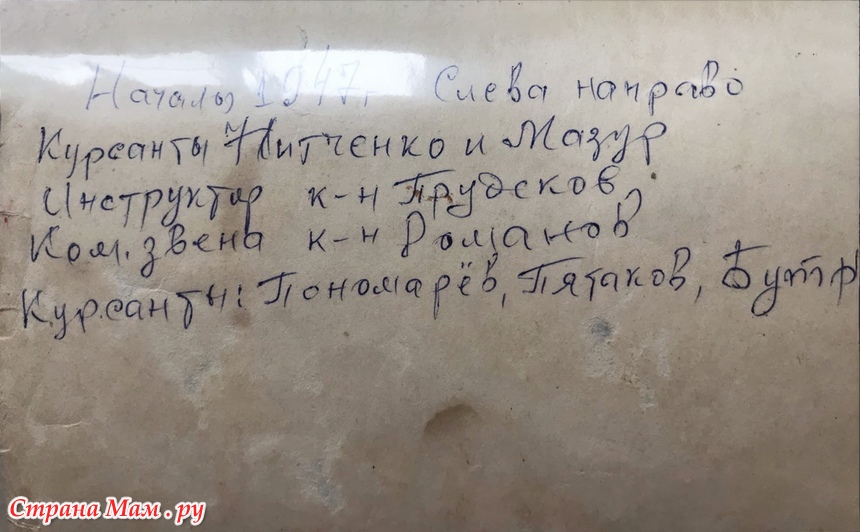 Начало 1947г. Слева направо
Курсанты Нитченко и Мазур
Инструктор к-н Прудсков
Ком. звена к-н Романов
Курсанты: Пономарёв, Пятаков,
Страна Мам.ру